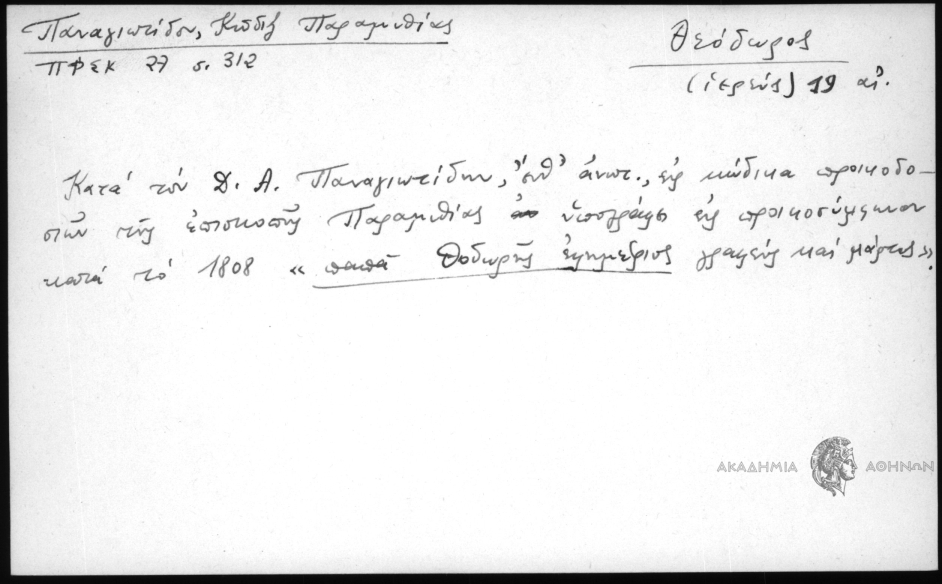 Παναγιωτίδου, Κῶδιξ Παραμυθίας
ΠΦΣΚ 27 σ. 312
Θεόδωρος
(ἱερεύς) 19 αἰ.
Κατά τόν Δ. Α. Παναγιωτίδην, ἔνθ' ἀνωτ., εἰς κώδικα προικοδο-
σιῶν τῆς ἐπισκοπῆς Παραμυθίας ὑπογράφει εἰς προικοσύμφωνον
κατά τό 1808 « παπᾶ Θοδωρῆς ἐφημέριος γραφεύς καί μάρτυς».
ΑΚΑΔΗΜΙΑ ΑΘΗΝΩΝ